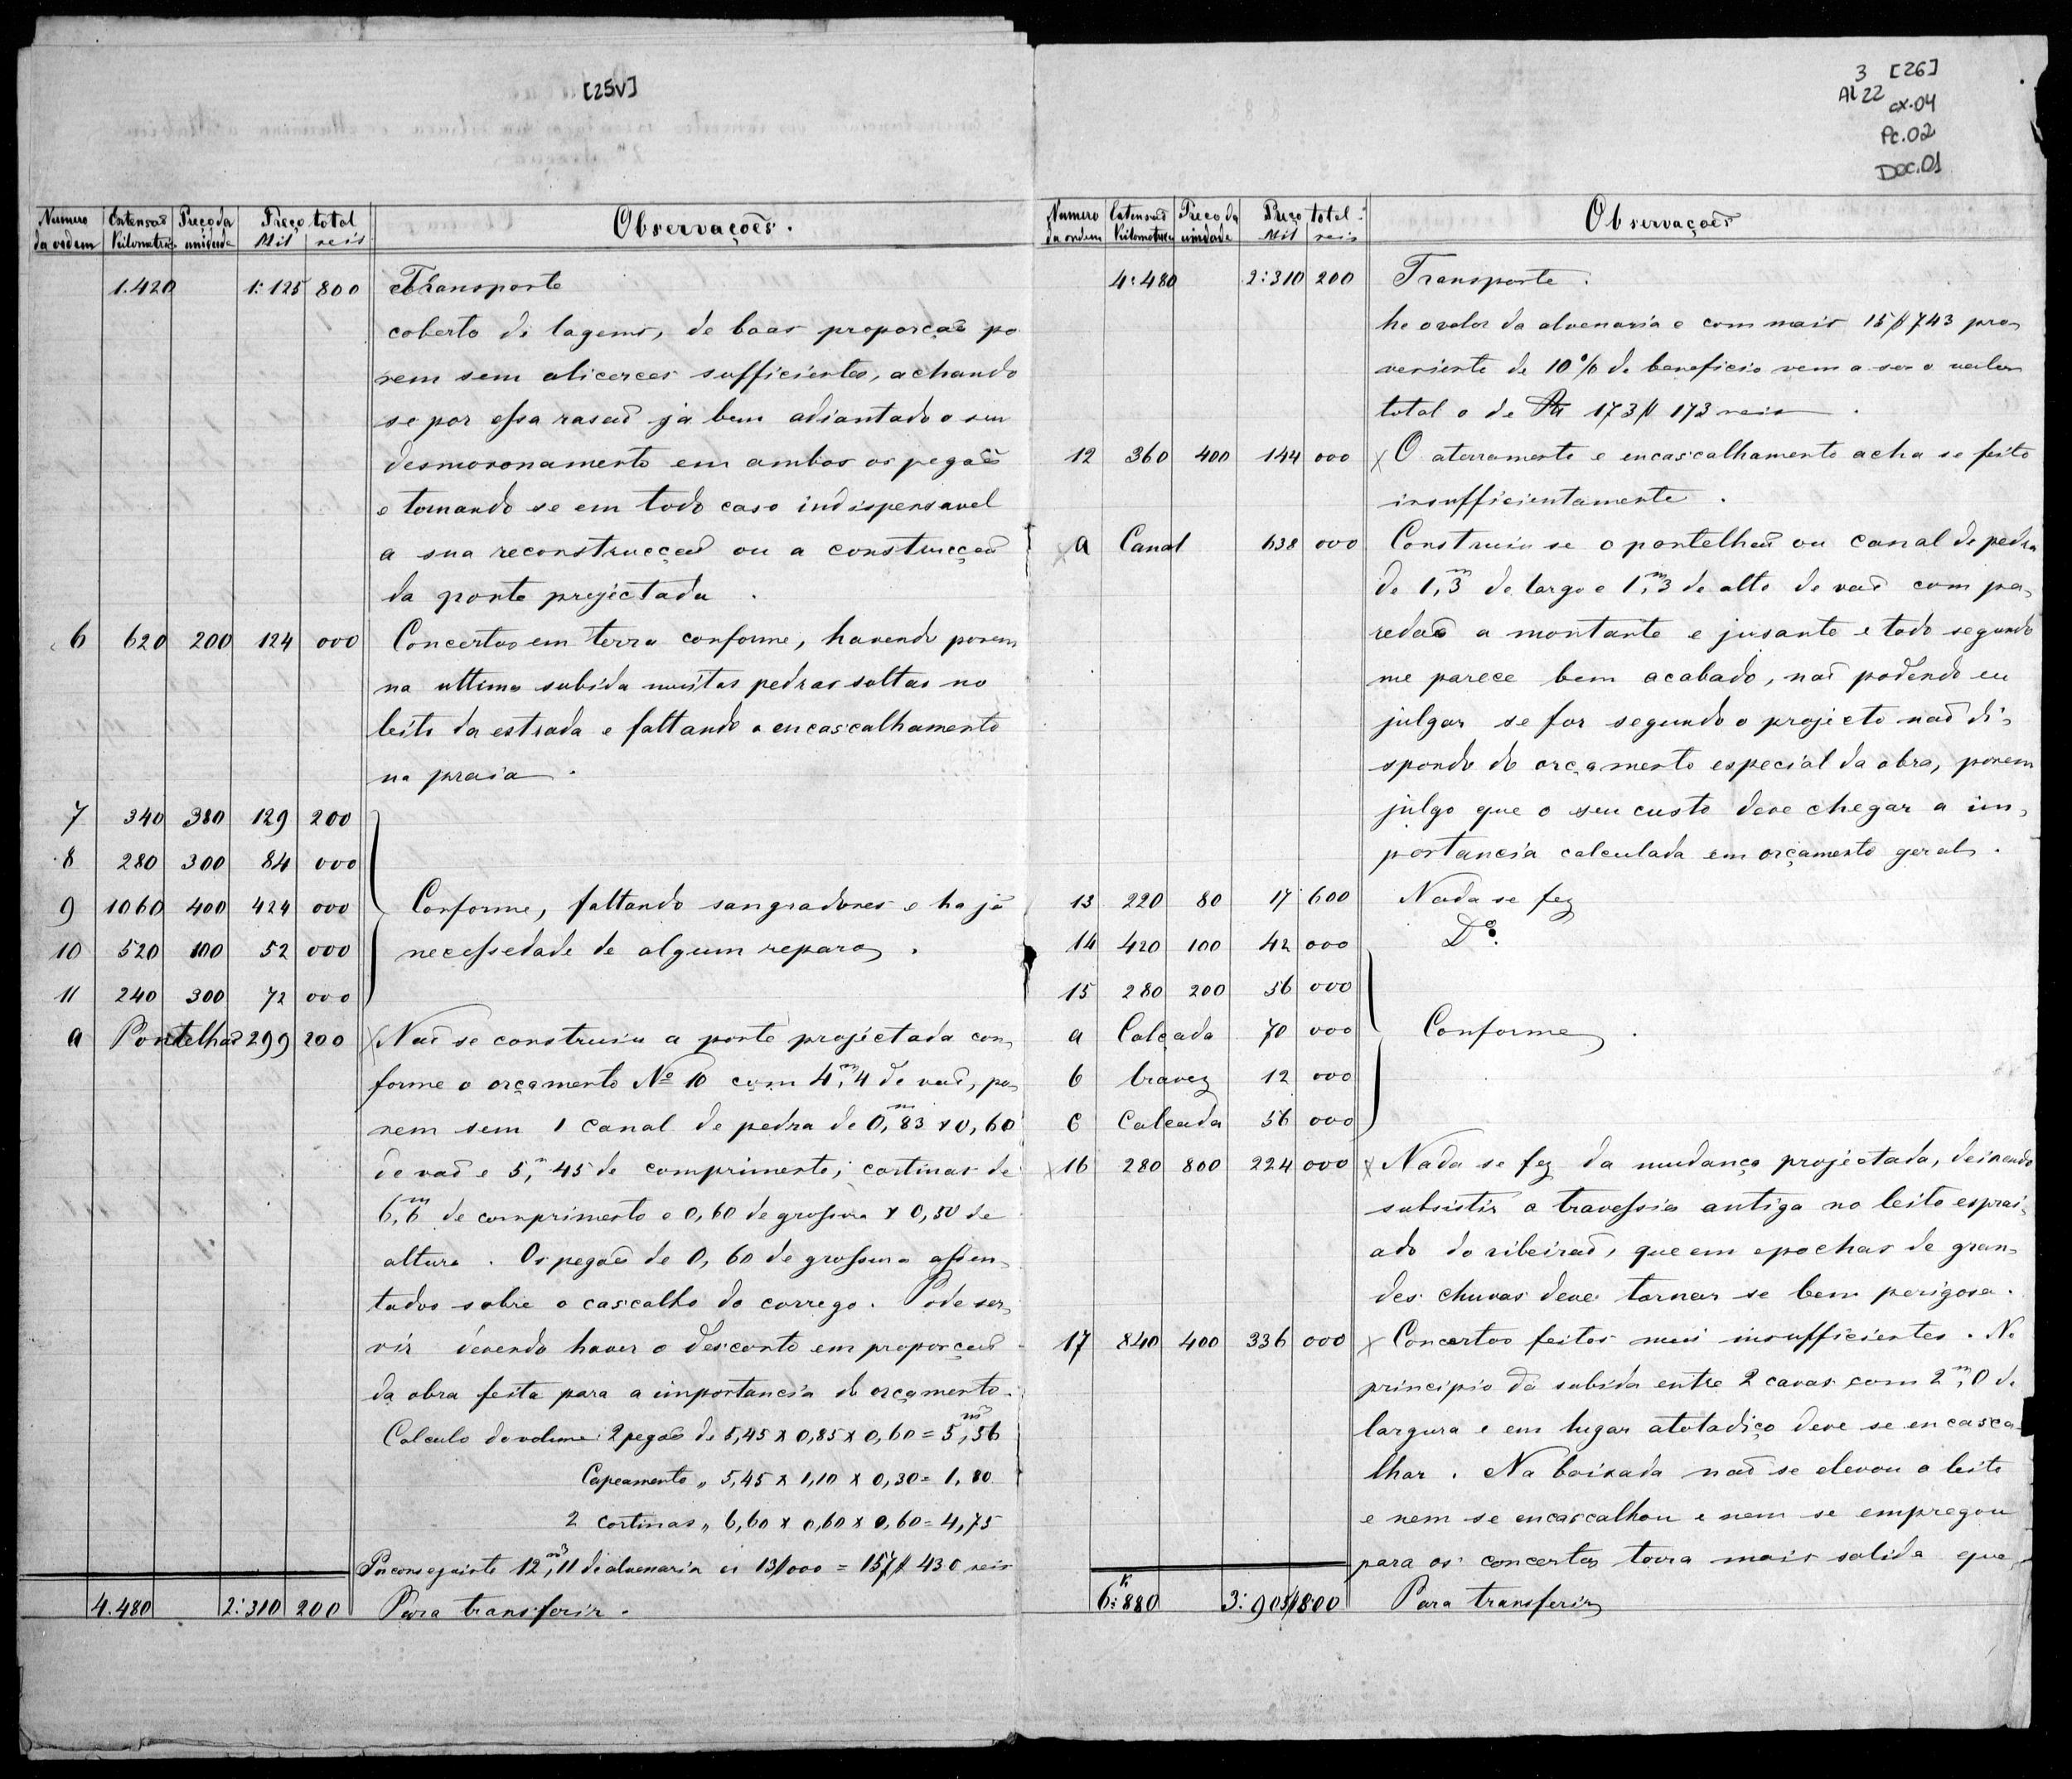 [25v]
Numero da ordem | Extensaõ Kilometrica | Preço da unidade | Preço total Mil reis | Observações.
1.420 | 1:125 800 | Transporte
coberto di lagems, de boas proporçaõ po
rem sem alicerces sufficientes, achando
se por essa rasaõ já bem adiantado o seu
desmoronamento em ambos os pegaõs
e tornando se em todo caso indispensavel
a sua reconstrucçaõ ou a construcçaõ
da ponte projectada .
6 | 620 | 200 | 124 000 | Concertos em terra conforme, havendo porem
na ultima subida muitas pedras soltas no
leito da estrada e faltando o encascalhamento
na praia .
7 | 340 | 380 | 129 200
8 | 280 | 300 | 84 000
9 | 1060 | 400 | 424 000 | Conforme, faltando sangradores e ha já
10 | 520 | 100 | 52 000 | necessedade de algum reparo .
11 | 240 | 300 | 72 000
a | Pontelhaõ | 299 200 | Naõ se construiu a ponte projectada con,
forme o orçamento Nº 10 com 4,m4 de vaõ, po,
rem sem 1 canal de pedra de 0,m83 x 0,60
de vaõ e 5,m45 de comprimento; cortinas de
6,m6 de comprimento e 0,60 de grossura x 0,30 de
altura . Os pegaõs de 0,60 de grossura assen,
tados sobre o cascalho do corrego. Pode ser,
vir devendo haver o desconto em proporçaõ
da obra feita para a importancia do orçamento.
Calculo do volume: 2 pegaõs de 5,45 x 0,85 x 0,60 = 5,m356
Capeamento „ 5,45 x 1,10 x 0,30 = 1,80.
2 cortinas „ 6,60 x 0,60 x 0,60 = 4,75
Por conseguinte 12,m311 de alvenaria a 13$000 = 157$430 reis
4.480 | 2:310 200 | Para transferir .
3 [26]
Al 22 cx.04
Pc.02
Doc.01
Numero da ordem | Extensaõ Kilometrica | Preço da unidade | Preço total Mil reis | Observaçoẽs
4:480 | 2:310 200 | Transporte .
he o valor da alvenaria e com mais 15$743 pro,
veniente de 10% de beneficio vem a ser o valor
total o de Rs 173$173 reis .
12 | 360 | 400 | 144 000 | x O aterramento e encascalhamento acha se feito
insufficientemente .
a | Canal | 638 000 | Construiu se o pontelhaõ ou canal de pedra
de 1,m3 de largo e 1,m3 de alto de vaõ com pa,
redaõs a montante e jusante e todo segundo
me parece bem acabado, naõ podendo eu
julgar se for segundo o projecto naõ di,
spondo do orçamento especial da obra, porem
julgo que o seu custo deve chegar a im,
portancia calculada em orçamento geral .
13 | 220 | 80 | 17 600 | Nada se fez
14 | 420 | 100 | 42 000 | Dº.
15 | 280 | 200 | 56 000
a | Calçada | 70 000 | Conforme .
b | Travez | 12 000
c | Calçada | 56 000
x 16 | 280 | 800 | 224 000 | x Nada se fez da mudança projectada, deixando
subsistir a travessia antiga no leito esprai,
ado do ribeiraõ, que em epochas de gran,
des chuvas deve tornar se bem perigosa.
17 | 840 | 400 | 336 000 | x Concertos feitos mui insufficientes. No
principio da subida entre 2 cavas com 2,m0 de
largura e em lugar atoladiço deve se encasca
lhar. Na baixada naõ se elevou o leito
e nem se encascalhou e nem se empregou
para os concertos terra mais solida que,
6:K880 | 3:905$800 | Para transferir